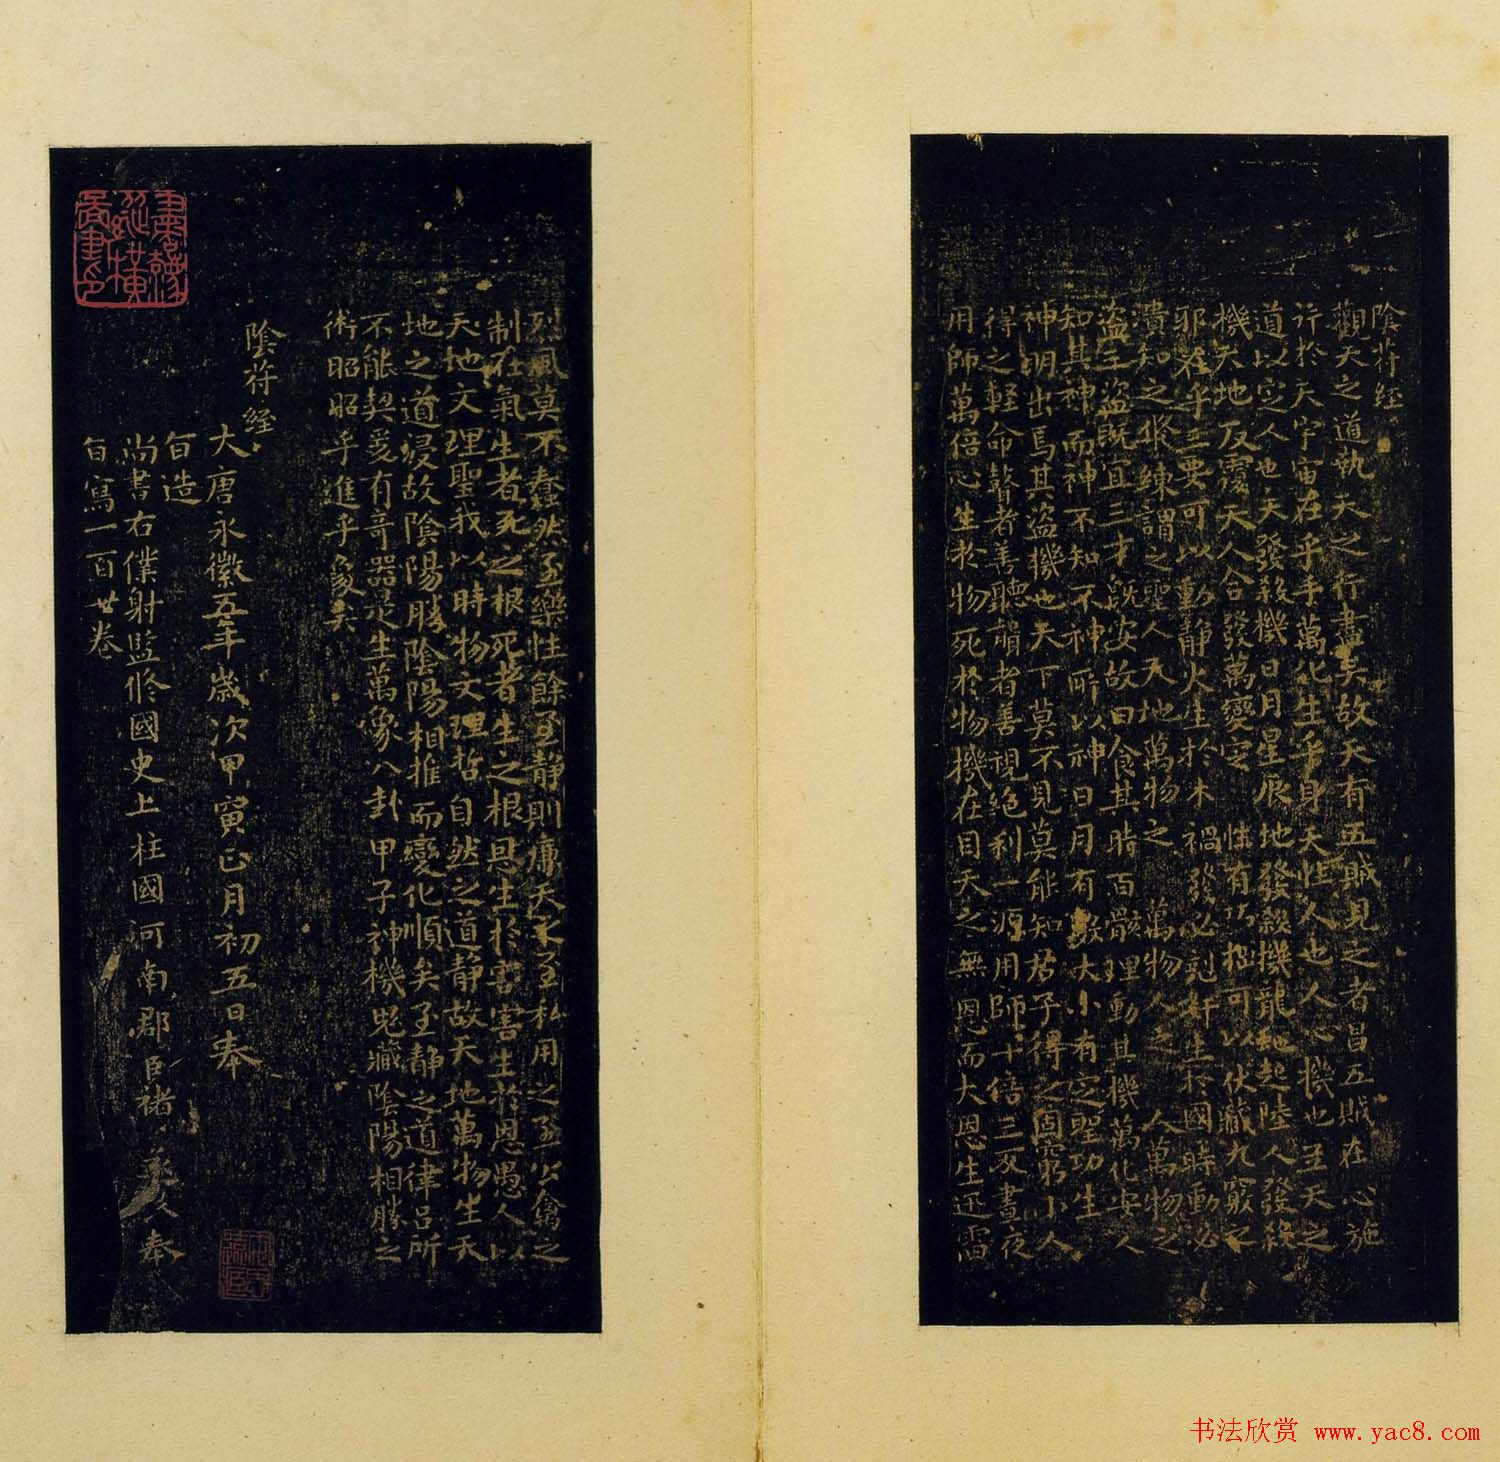 陰符經
觀天之道執天之行盡矣故天有五賊見之者昌五賊在心施
行於天宇宙在乎手萬化生乎身天性人也人心機也立天之
道以定人也天發殺機日月星辰地發殺機龍蛇起陸人發殺
機天地反覆天人合發萬變定 性有巧拙可以伏藏九竅之
邪在乎三要可以動静火生於木 禍發必剋奸生於國時動必
潰知之修練謂之聖人天地萬物之 萬物人之 人萬物之
盜三盜既宜三才既安故曰食其時百骸理動其機萬化安人
知其神而神不知不神所以神日月有數大小有定聖功生
神明出焉其盜機也天下莫不見莫能知君子得之固窮小人
得之輕命瞽者善聽聾者善視絶利一源用師十倍三反晝夜
用師萬倍心生於物死於物機在目天之無恩而大恩生迅雷
烈風莫不蠢然至樂性餘至静則廉天之至私用之至公禽之
制在氣生者死之根死者生之根恩生於害害生於恩愚人以
天地文理聖我以時物文理哲自然之道静故天地萬物生天
地之道浸故陰陽勝陰陽相推而變化順矣至静之道律吕所
不能契爰有奇器是生萬像八卦甲子神機鬼藏陰陽相勝之
術昭昭乎進乎象矣
陰符經
大唐永徽五年歲次甲寅正月初五日奉
旨造
尚書右僕射監修國史上柱國河南郡臣褚遂良奉
旨寫一百廿卷
书法欣赏 www.yac8.com